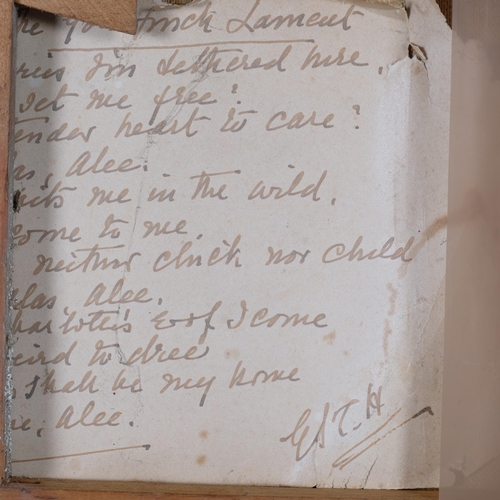 he goldfinch Lament
I'm tethered here.
set me free?
ender heart to care?
as, Alee.
me in the wild,
come to me,
neither chick nor child
las, Alee.
harlotte's I come
eird to dree
shall be my home
e, Alee.
G S T. H